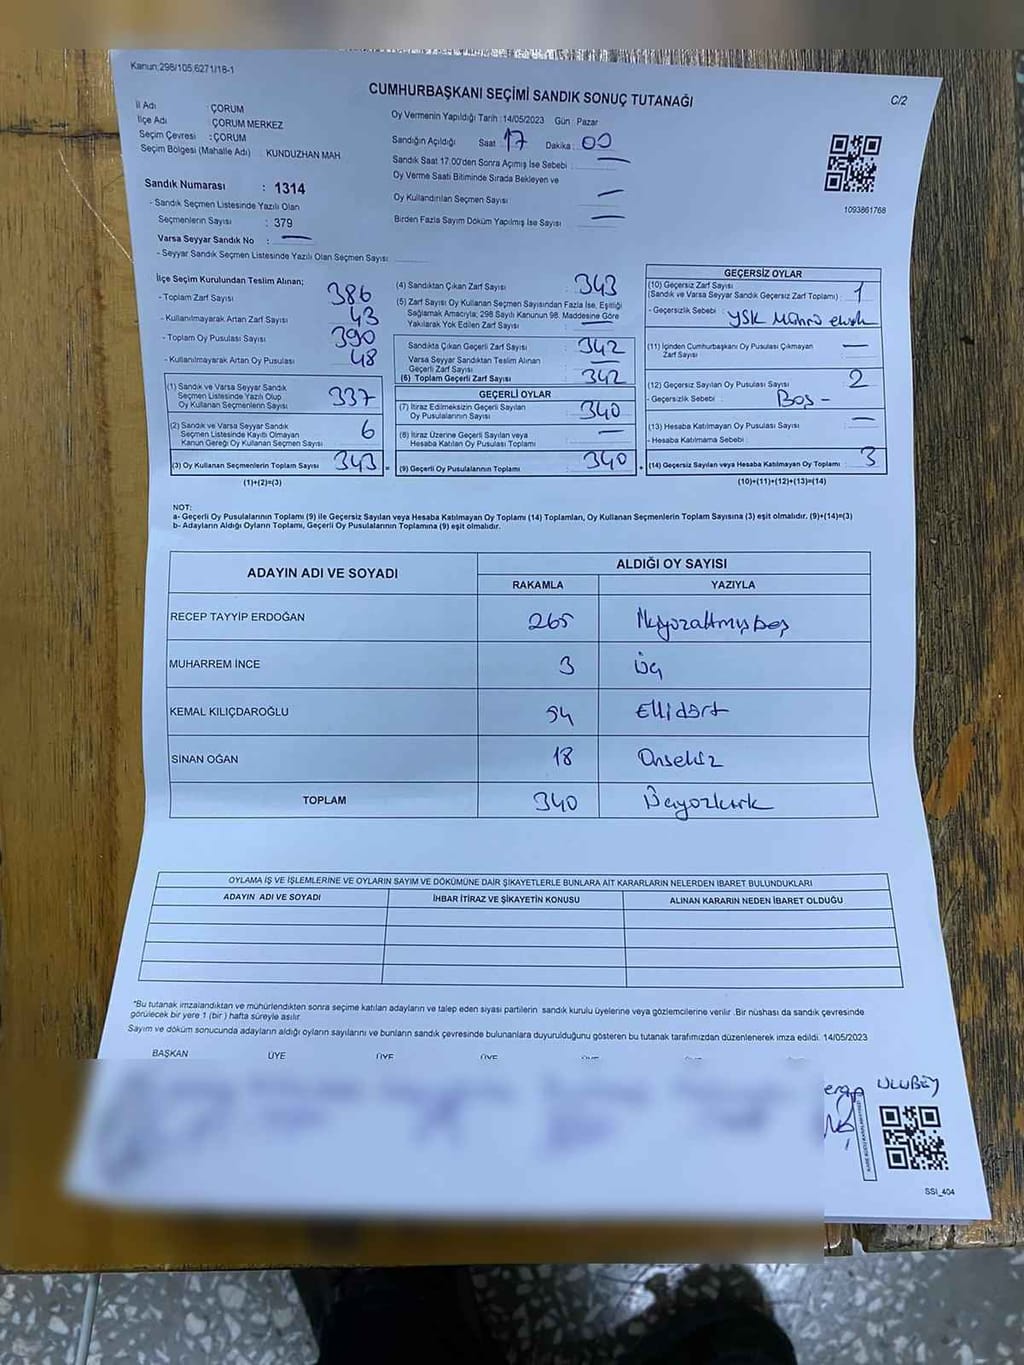 Kanun:298/105,6271/18-1
C/2
CUMHURBAŞKANI SEÇİMİ SANDIK SONUÇ TUTANAĞI
İl Adı : ÇORUM
İlçe Adı : ÇORUM MERKEZ
Seçim Çevresi : ÇORUM
Seçim Bölgesi (Mahalle Adı) : KUNDUZHAN MAH
Sandık Numarası : 1314
- Sandık Seçmen Listesinde Yazılı Olan
Seçmenlerin Sayısı : 379
Varsa Seyyar Sandık No : —
- Seyyar Sandık Seçmen Listesinde Yazılı Olan Seçmen Sayısı:
Oy Vermenin Yapıldığı Tarih : 14/05/2023 Gün : Pazar
Sandığın Açıldığı Saat : 17 Dakika : 00
Sandık Saat 17.00'den Sonra Açımış İse Sebebi : —
Oy Verme Saati Bitiminde Sırada Bekleyen ve
Oy Kullandırılan Seçmen Sayısı : —
Birden Fazla Sayım Döküm Yapılmış İse Sayısı : —
1093861768
İlçe Seçim Kurulundan Teslim Alınan;
- Toplam Zarf Sayısı : 386
- Kullanılmayarak Artan Zarf Sayısı : 43
- Toplam Oy Pusulası Sayısı : 390
- Kullanılmayarak Artan Oy Pusulası : 48
(1) Sandık ve Varsa Seyyar Sandık
Seçmen Listesinde Yazılı Olup
Oy Kullanan Seçmenlerin Sayısı : 337
(2) Sandık ve Varsa Seyyar Sandık
Seçmen Listesinde Kayıtlı Olmayan
Kanun Gereği Oy Kullanan Seçmen Sayısı : 6
(3) Oy Kullanan Seçmenlerin Toplam Sayısı : 343
(1)+(2)=(3)
(4) Sandıktan Çıkan Zarf Sayısı : 343
(5) Zarf Sayısı Oy Kullanan Seçmen Sayısından Fazla İse, Eşitliği
Sağlamak Amacıyla; 298 Sayılı Kanunun 98. Maddesine Göre
Yakılarak Yok Edilen Zarf Sayısı : —
Sandıkta Çıkan Geçerli Zarf Sayısı : 342
Varsa Seyyar Sandıktan Teslim Alınan
Geçerli Zarf Sayısı : —
(6) Toplam Geçerli Zarf Sayısı : 342
GEÇERLİ OYLAR
(7) İtiraz Edilmeksizin Geçerli Sayılan
Oy Pusulalarının Sayısı : 340
(8) İtiraz Üzerine Geçerli Sayılan veya
Hesaba Katılan Oy Pusulası Toplamı : —
(9) Geçerli Oy Pusulalarının Toplamı : 340
GEÇERSİZ OYLAR
(10) Geçersiz Zarf Sayısı
(Sandık ve Varsa Seyyar Sandık Geçersiz Zarf Toplamı) : 1
- Geçersizlik Sebebi : YSK Mührü eksik
(11) İçinden Cumhurbaşkanı Oy Pusulası Çıkmayan
Zarf Sayısı : —
(12) Geçersiz Sayılan Oy Pusulası Sayısı : 2
- Geçersizlik Sebebi : Boş -
(13) Hesaba Katılmayan Oy Pusulası Sayısı : —
- Hesaba Katılmama Sebebi :
(14) Geçersiz Sayılan veya Hesaba Katılmayan Oy Toplamı : 3
(10)+(11)+(12)+(13)=(14)
NOT:
a- Geçerli Oy Pusulalarının Toplamı (9) ile Geçersiz Sayılan veya Hesaba Katılmayan Oy Toplamı (14) Toplamları, Oy Kullanan Seçmenlerin Toplam Sayısına (3) eşit olmalıdır. (9)+(14)=(3)
b- Adayların Aldığı Oyların Toplamı, Geçerli Oy Pusulalarının Toplamına (9) eşit olmalıdır.
ADAYIN ADI VE SOYADI
ALDIĞI OY SAYISI
RAKAMLA YAZIYLA
RECEP TAYYİP ERDOĞAN 265 İkiyüzaltmışbeş
MUHARREM İNCE 3 Üç
KEMAL KILIÇDAROĞLU 54 Ellidört
SİNAN OĞAN 18 Onsekiz
TOPLAM 340 Üçyüzkırk
OYLAMA İŞ VE İŞLEMLERİNE VE OYLARIN SAYIM VE DÖKÜMÜNE DAİR ŞİKAYETLERLE BUNLARA AİT KARARLARIN NELERDEN İBARET BULUNDUKLARI
ADAYIN ADI VE SOYADI İHBAR İTİRAZ VE ŞİKAYETİN KONUSU ALINAN KARARIN NEDEN İBARET OLDUĞU
*Bu tutanak imzalandıktan ve mühürlendikten sonra seçime katılan adayların ve talep eden siyasi partilerin sandık kurulu üyelerine veya gözlemcilerine verilir .Bir nüshası da sandık çevresinde
görülecek bir yere 1 (bir ) hafta süreyle asılır.
Sayım ve döküm sonucunda adayların aldığı oyların sayılarını ve bunların sandık çevresinde bulunanlara duyurulduğunu gösteren bu tutanak tarafımızdan düzenlenerek imza edildi. 14/05/2023
BAŞKAN ÜYE ÜYE ÜYE ÜYE ÜYE
ULUBEY
SSI_404